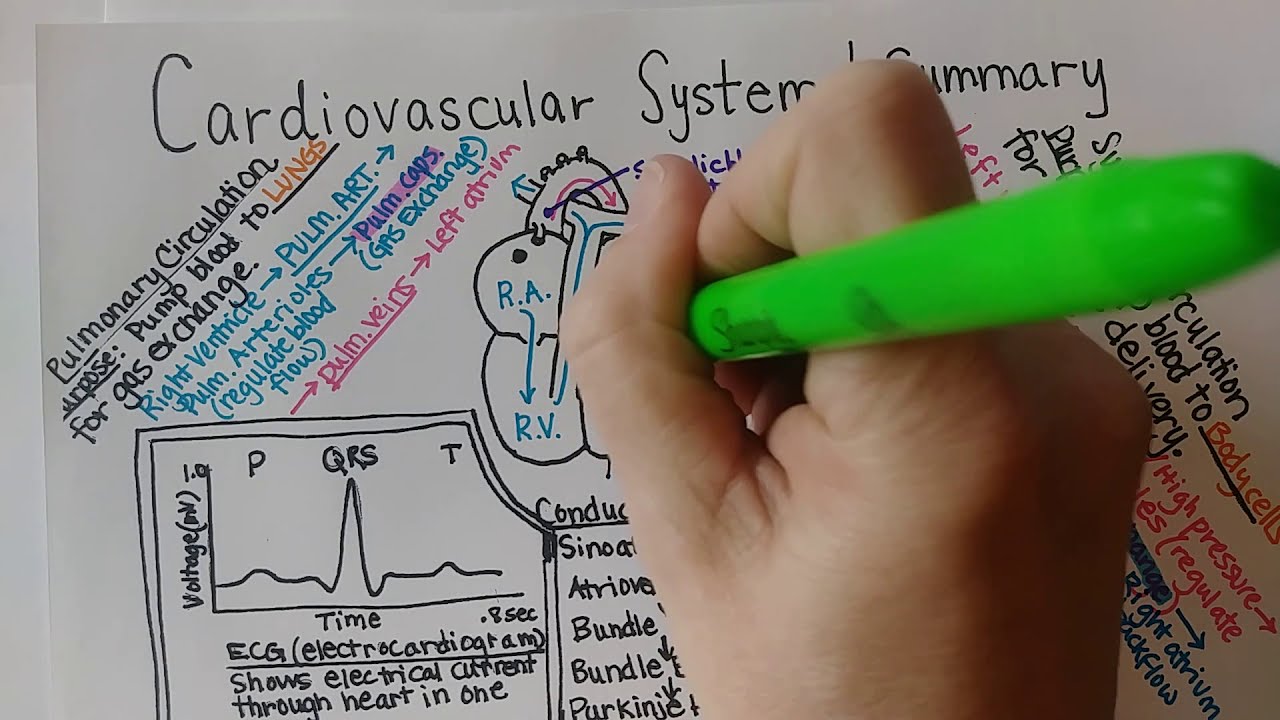 Cardiovascular System Summary
Pulmonary Circulation
Purpose: Pump blood to LUNGS
for gas exchange.
Right Ventricle → PULM. ART. →
Pulm. Arterioles → Pulm. caps.
(regulate blood flow)
(Gas Exchange)
→ Pulm. veins → Left atrium
R.A.
R.V.
Left
for
rculation
blood to Body cells
delivery.
High pressure →
les (regulate
Right atrium
ackflow
1.0
P QRS T
Voltage(mV)
Time
.8sec
ECG (electrocardiogram)
Shows electrical current
through heart in one
Conduc
Sinoat
Atriove
Bundle
Bundle
Purkinje